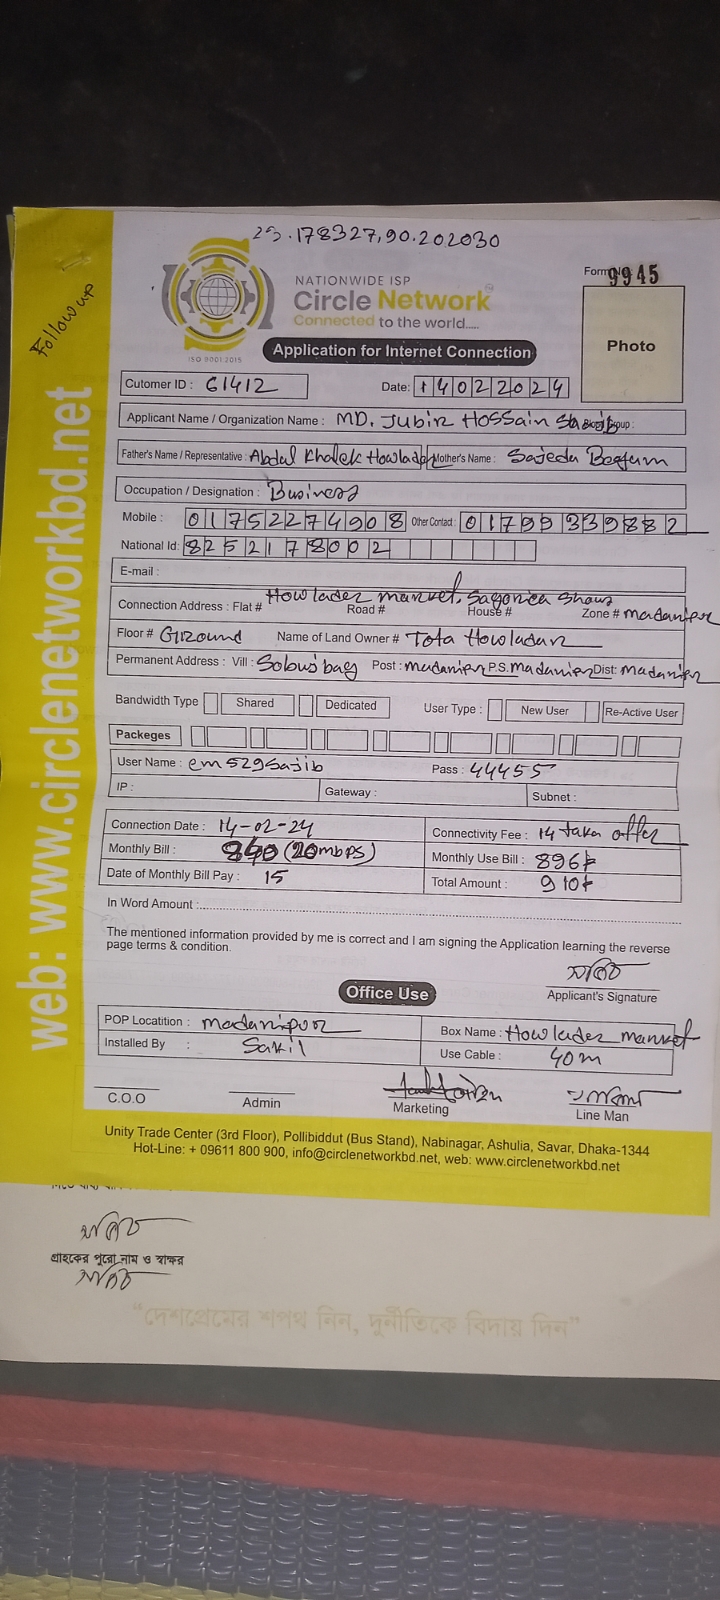 23.178327,90.202030
Follow up
NATIONWIDE ISP
Circle Network
Connected to the world.....
ISO 9001:2015
Form No. 9945
Photo
Application for Internet Connection
Cutomer ID : 61412
Date: 14022024
Applicant Name / Organization Name : MD. Jubir Hossain
Father's Name / Representative : Abdul Khalek Howlader Mother's Name : Sajeda Begum
Occupation / Designation : Business
Mobile : 01752274908 Other Contact : 01799339882
National Id: 8252178002
E-mail :
Connection Address : Flat # Howlader market, Road # House # Zone # madaripur
Floor # Ground Name of Land Owner # Tota Howladar
Permanent Address : Vill : Sobujbag Post : madaripur P.S. madaripur Dist: madaripur
Bandwidth Type Shared Dedicated User Type : New User Re-Active User
Packeges
User Name : em529sajib Pass : 44455
IP : Gateway : Subnet :
Connection Date : 14-02-24 Connectivity Fee : 14 taka offer
Monthly Bill : 840 (20mbps) Monthly Use Bill : 896
Date of Monthly Bill Pay : 15 Total Amount : 910
In Word Amount :
The mentioned information provided by me is correct and I am signing the Application learning the reverse
page terms & condition.
Applicant's Signature
Office Use
POP Locatition : madaripur Box Name : Howlader market
Installed By : Sakil Use Cable : 40m
C.O.O Admin Marketing Line Man
Unity Trade Center (3rd Floor), Pollibiddut (Bus Stand), Nabinagar, Ashulia, Savar, Dhaka-1344
Hot-Line: + 09611 800 900, info@circlenetworkbd.net, web: www.circlenetworkbd.net
web: www.circlenetworkbd.net
গ্রাহকের পুরো নাম ও স্বাক্ষর
"দেশপ্রেমের শপথ নিন, দুর্নীতিকে বিদায় দিন"